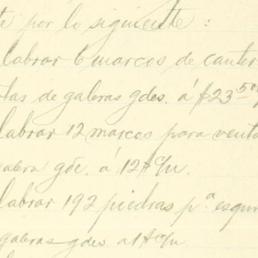 te por lo siguiente:
labrar 6 marcos de canter
tas de galeras gdes. á $23.50
labrar 12 marcos para venta
galera gde. á 12 $ c/u.
labrar 192 piedras pª esqui
galeras gdes. a 1 $ c/u